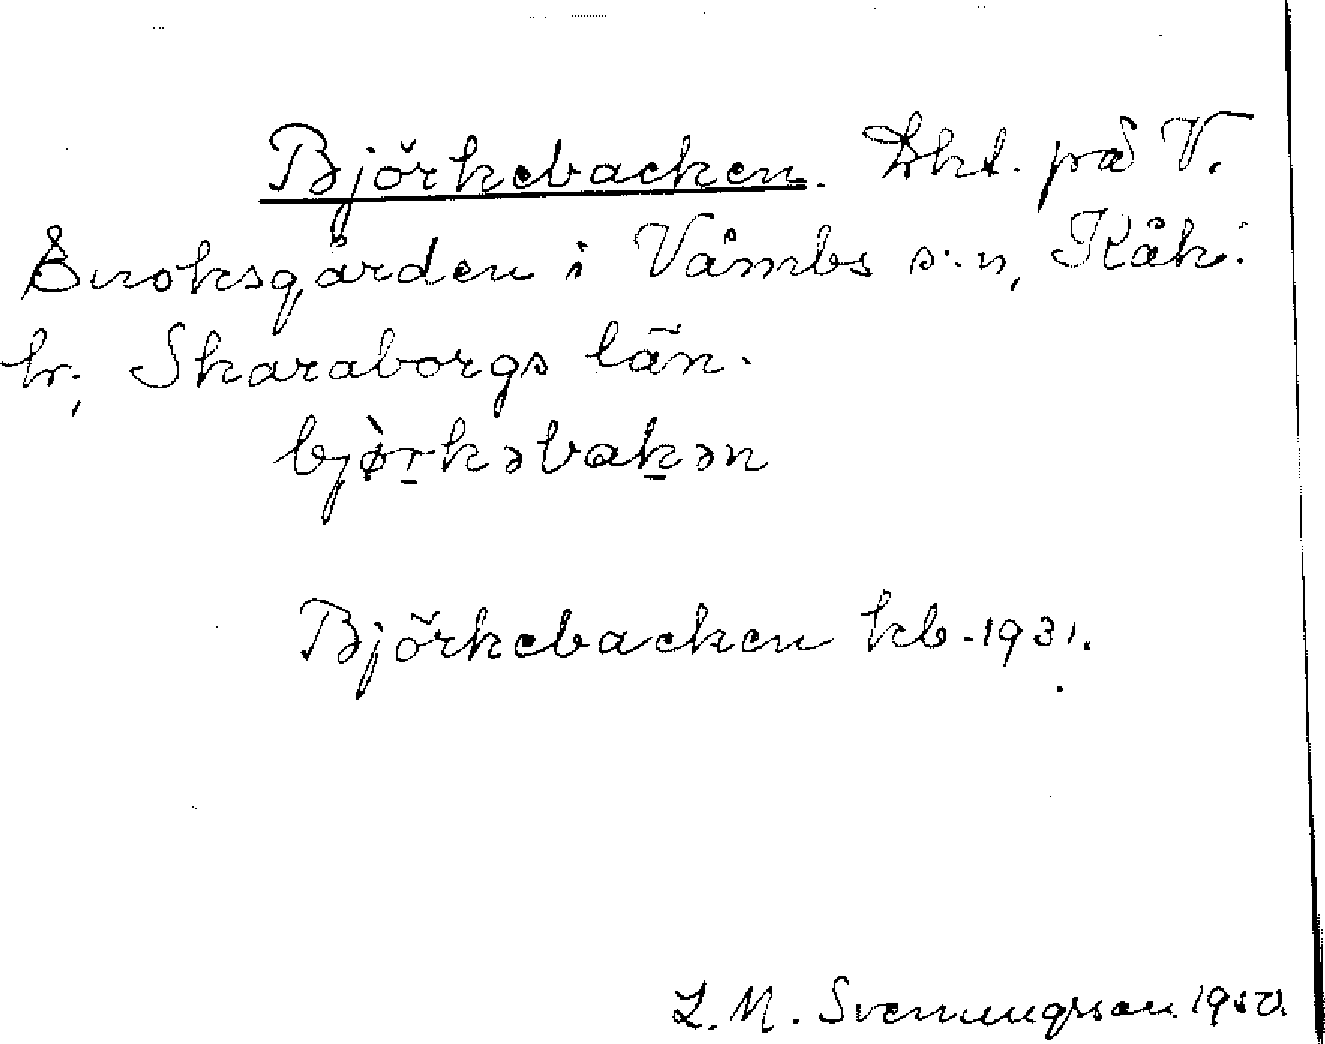 Björkebacken. Lht. på V.
Enoksgården i Våmbs s:n, Kåk:
hr, Skaraborgs län.
bjø̀rkəbakən
Björkebacken kb. 1931.
L. M. Svenungsson 1950.